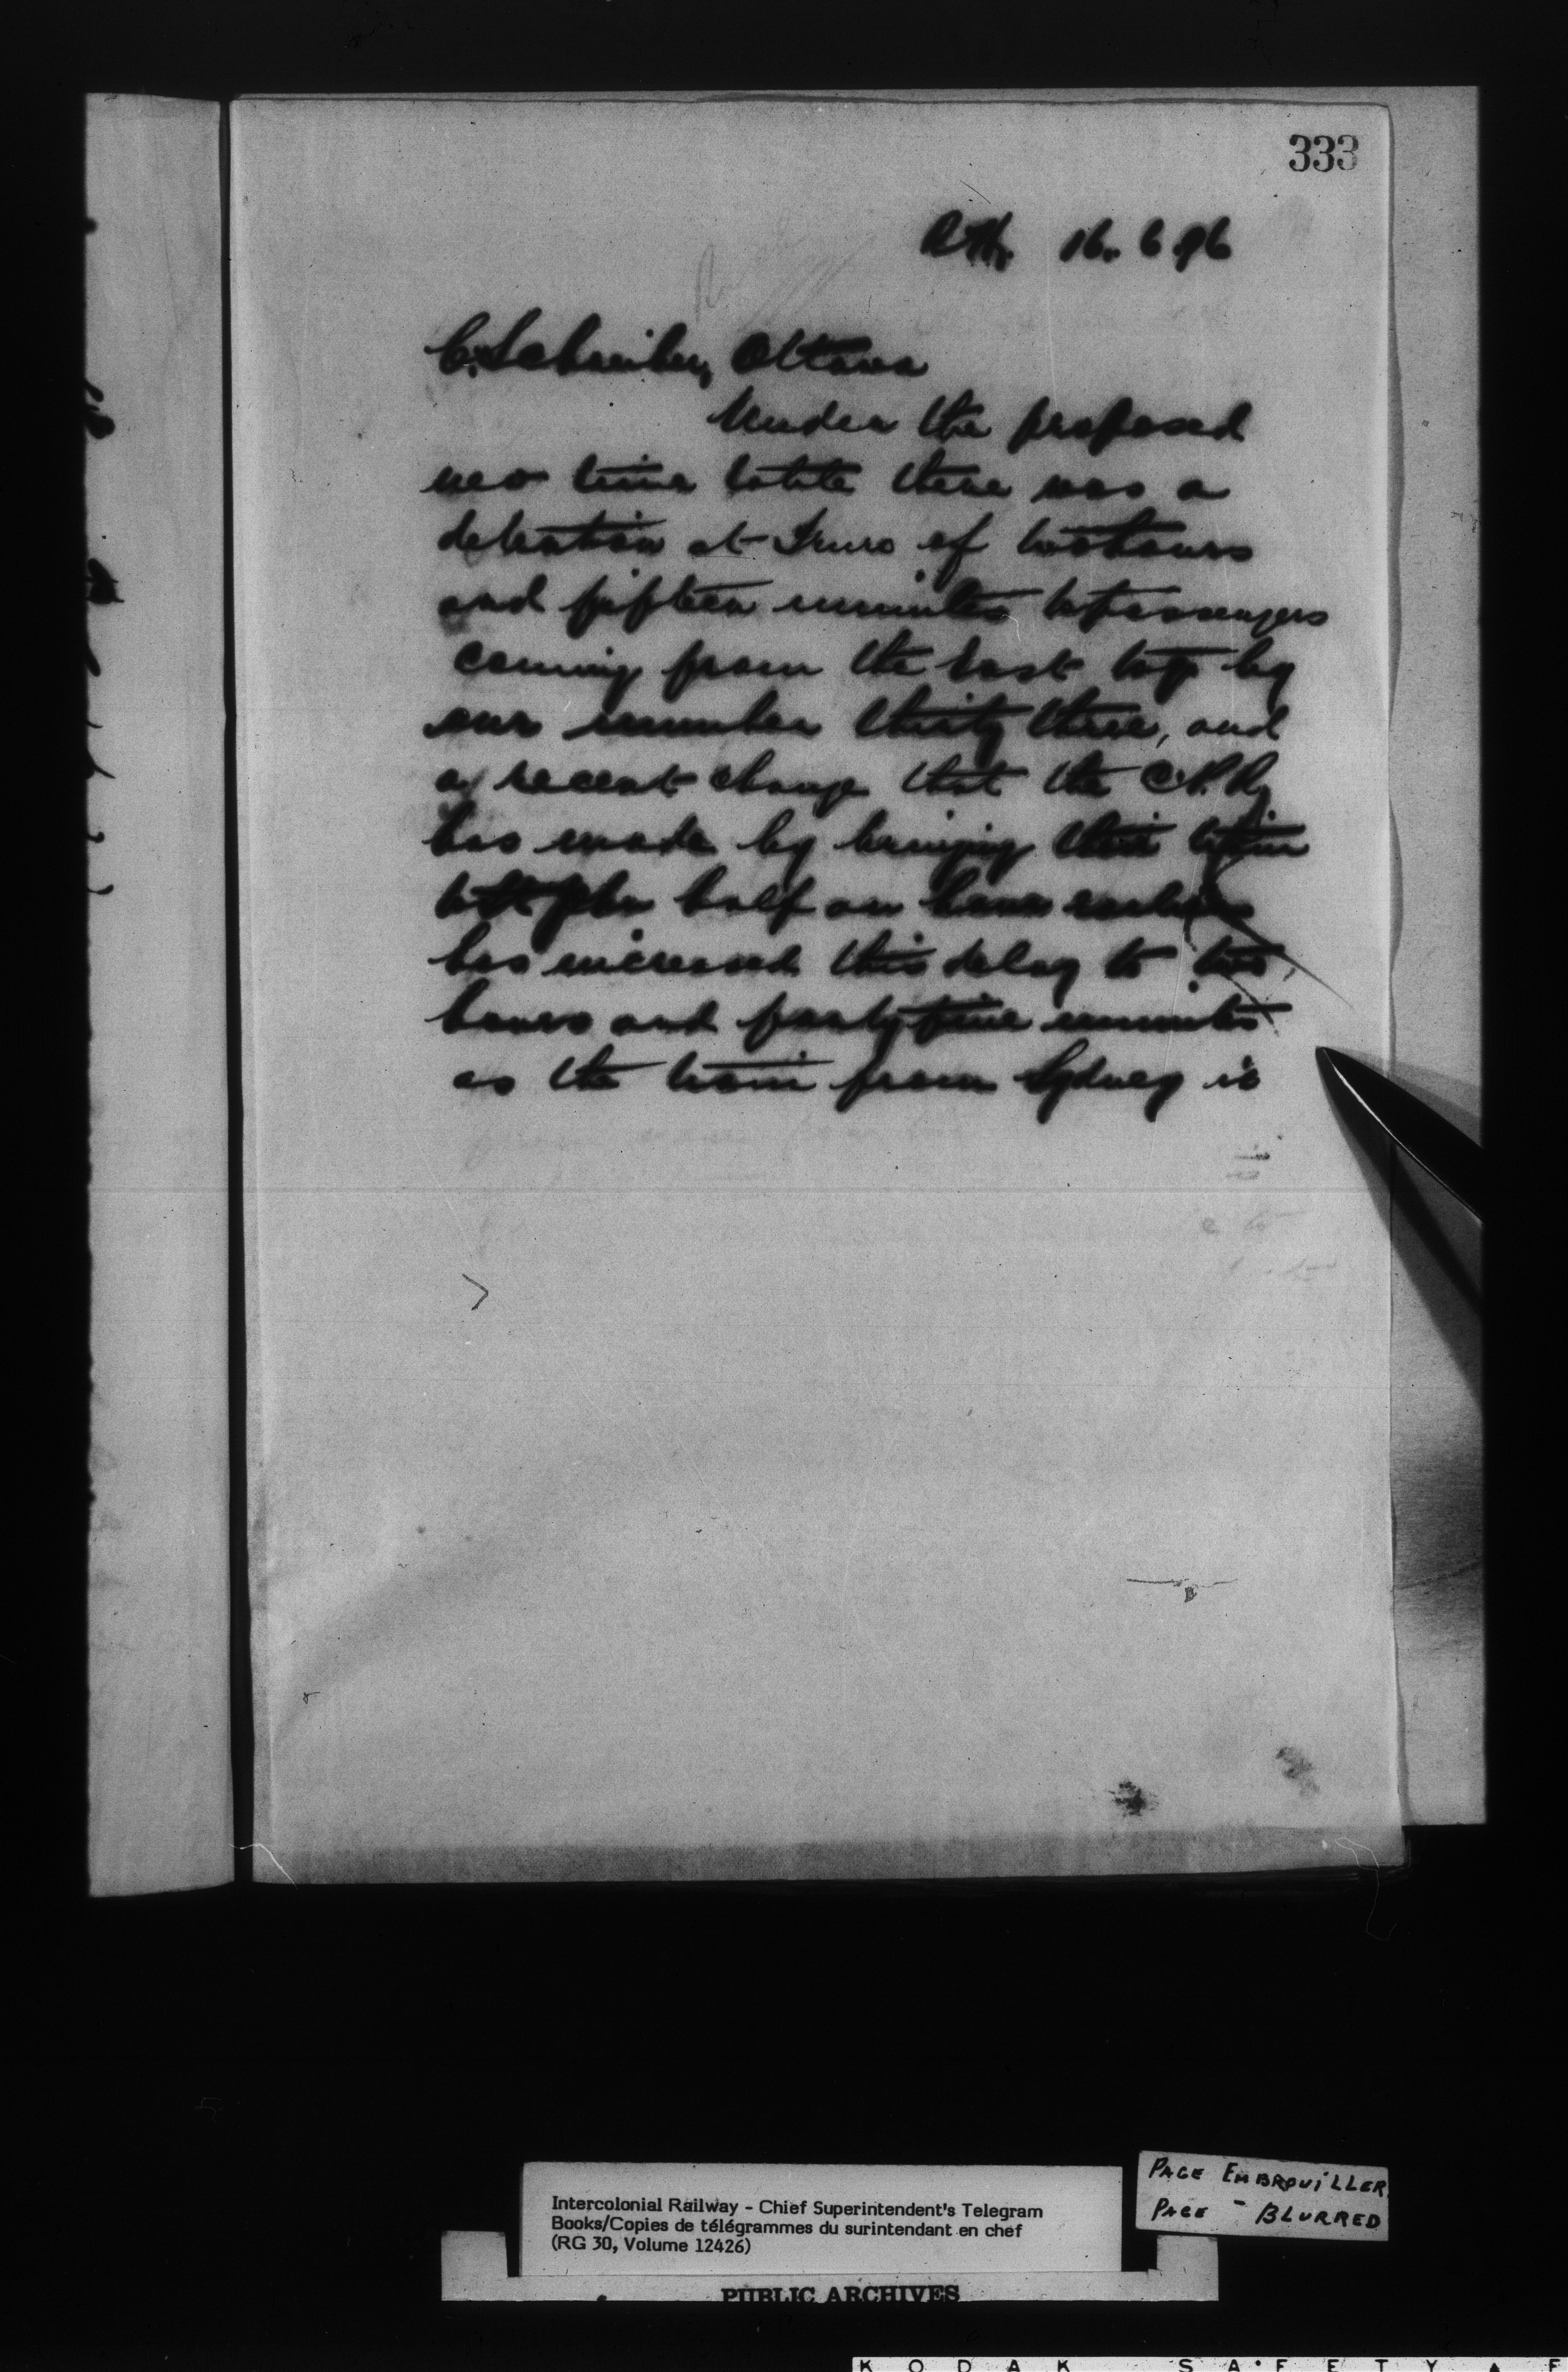 333
16. 6 96
C. Schreiber, Ottawa
Under the proposed
new time table there was a
detention at Truro of two hours
and fifteen minutes to passengers
coming from the East to go by
our number thirty three, and
a recent change that the C.P.Ry
has made by bringing their train
to St John half an hour earlier
has increased this delay to two
hours and forty five minutes
as the train from Sydney is
Intercolonial Railway - Chief Superintendent's Telegram
Books/Copies de télégrammes du surintendant en chef
(RG 30, Volume 12426)
PAGE EMBROUILLER
PAGE - BLURRED
PUBLIC ARCHIVES
KODAK SAFETY